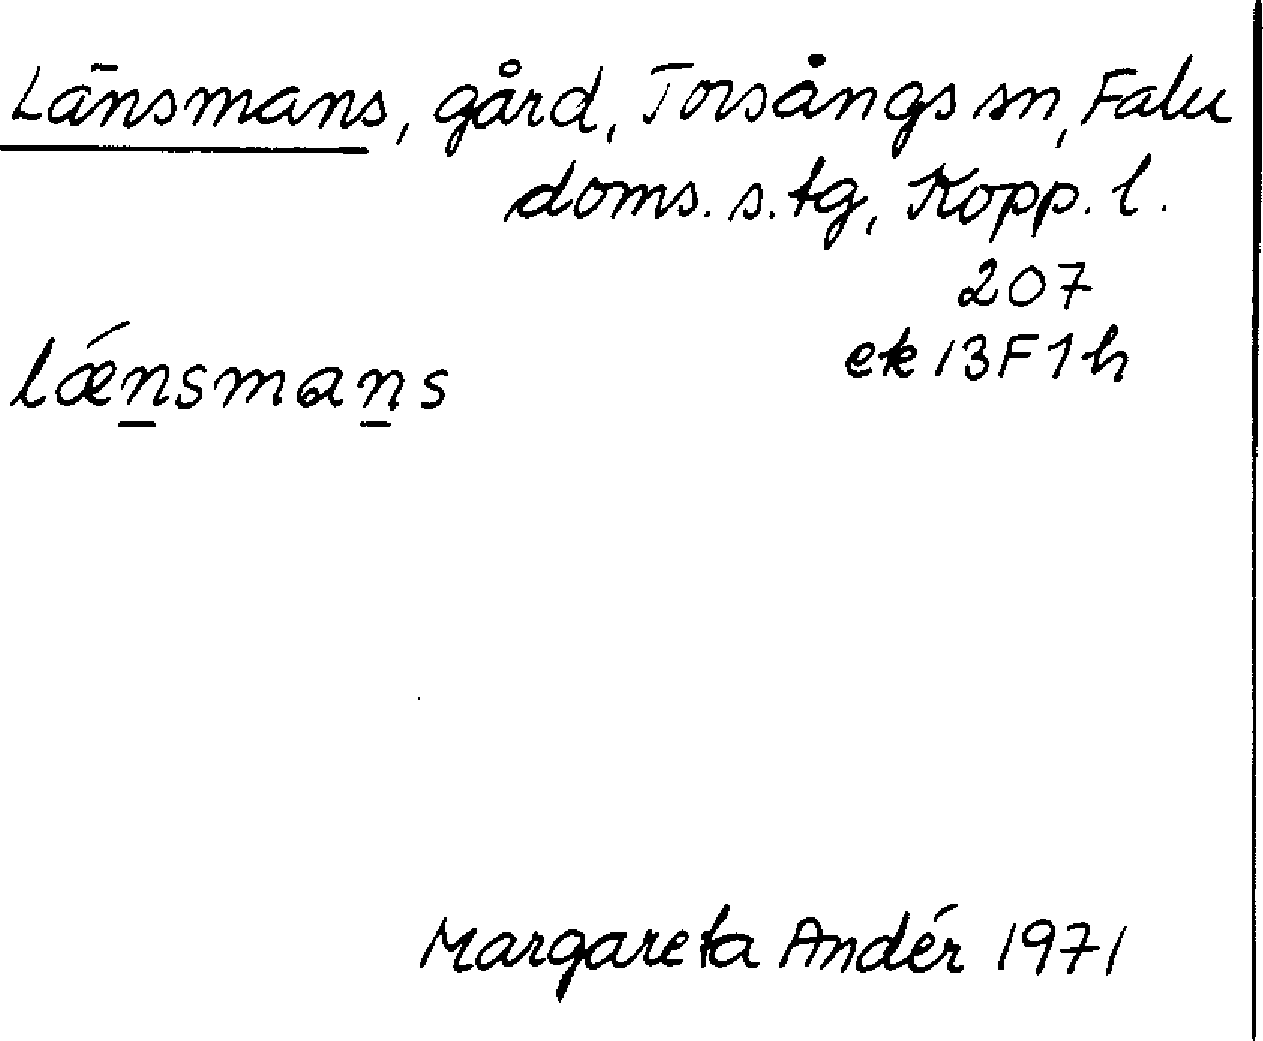 Länsmans, gård, Torsångs sn, Falu
doms. s. tg, Kopp. l.
207
ek 13F1h
lǽn̲sman̲s
Margareta Andér 1971